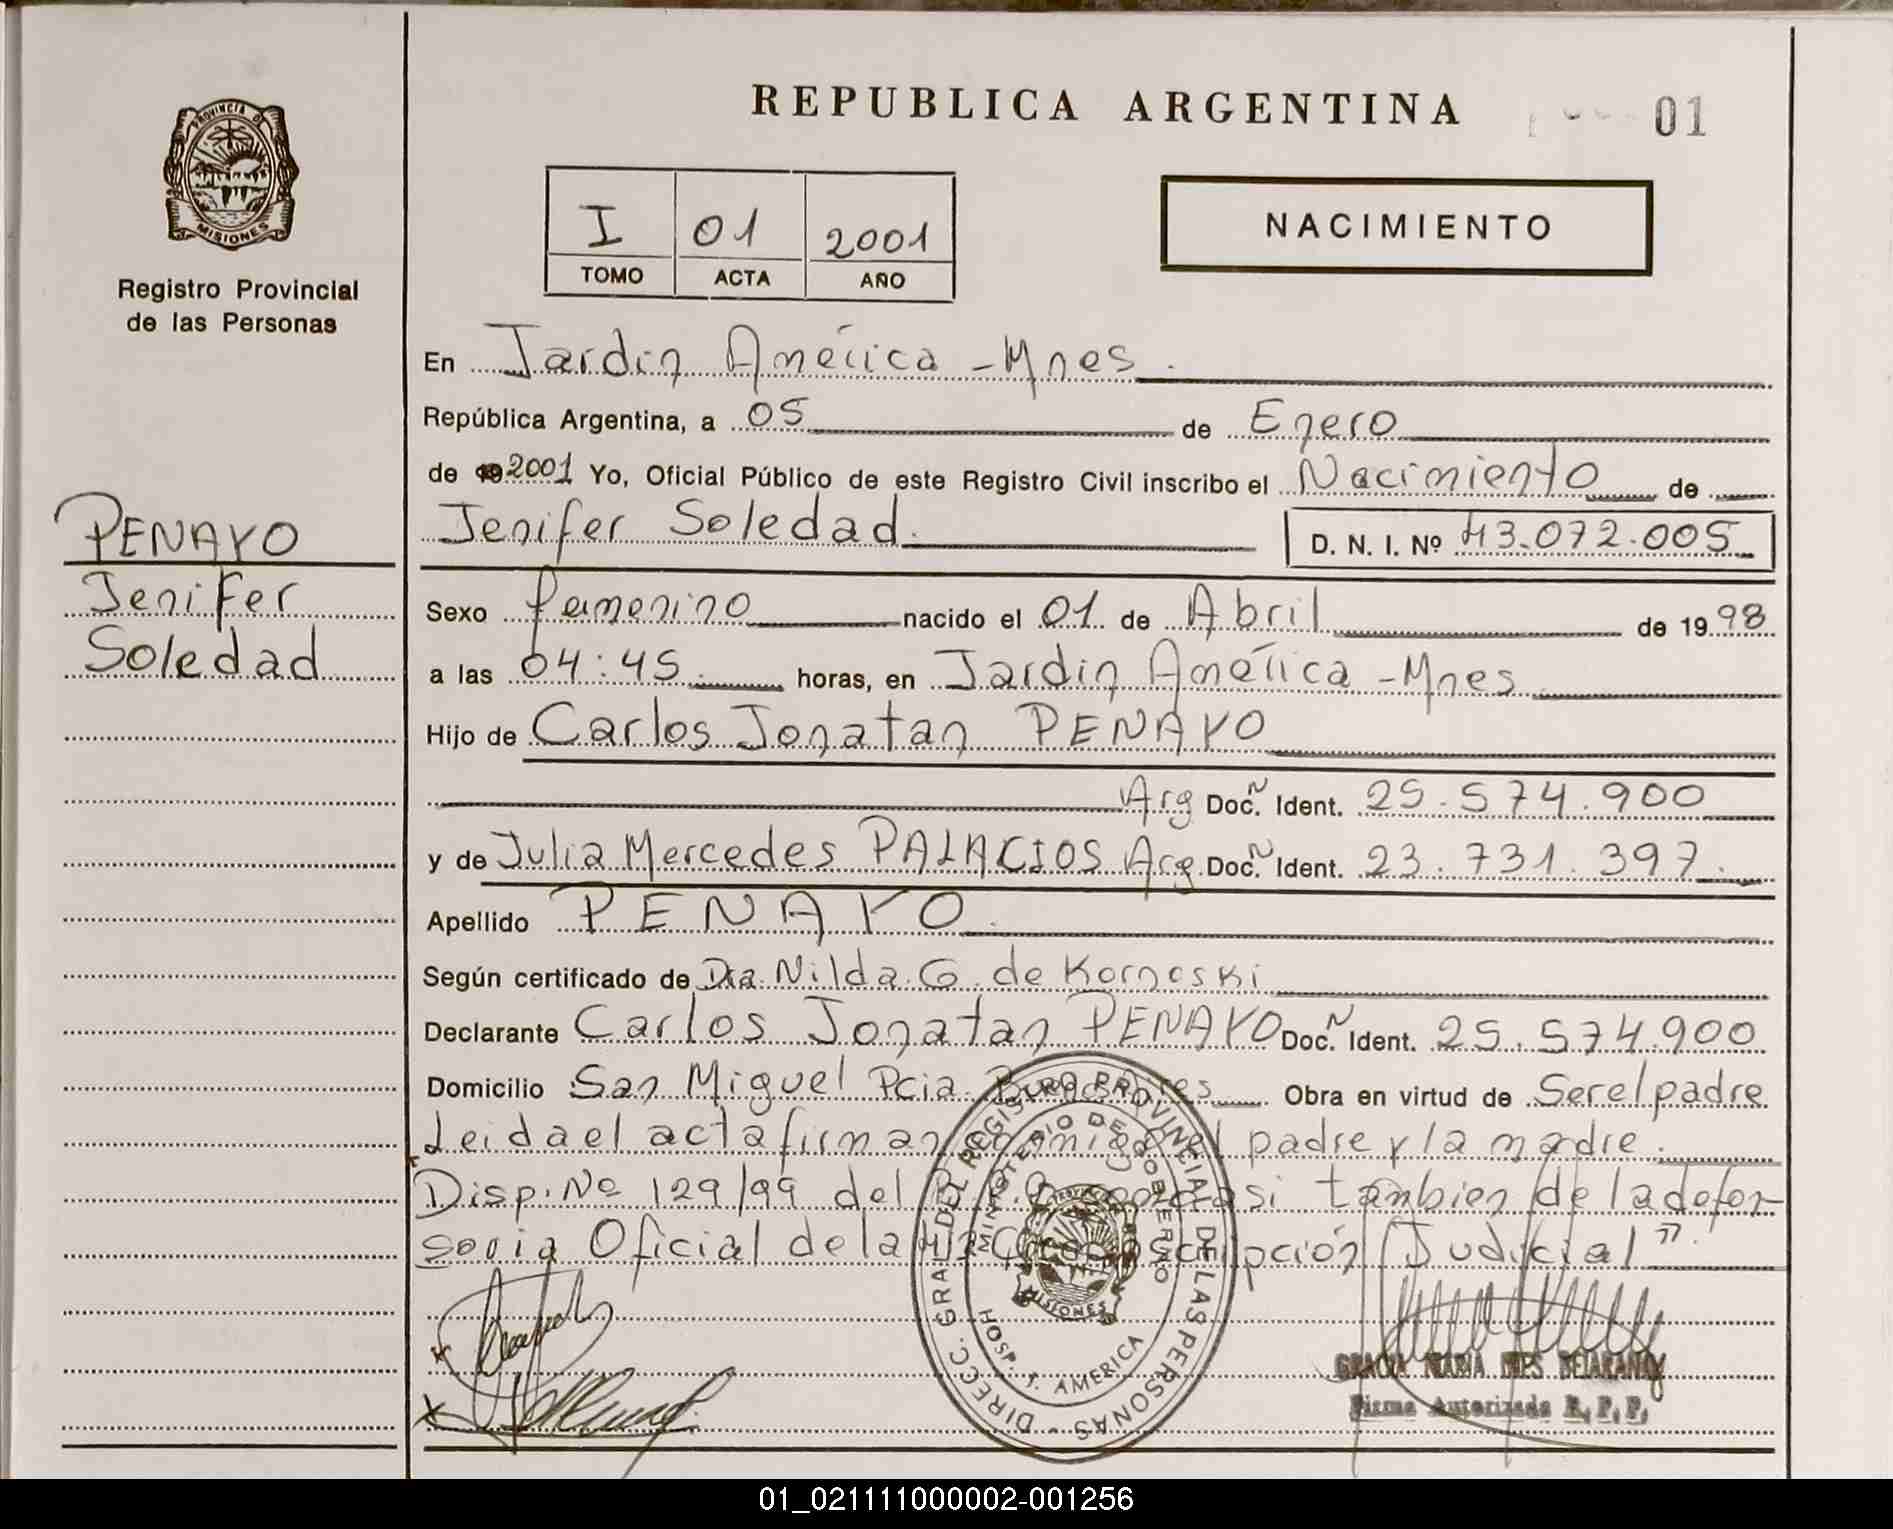 REPUBLICA ARGENTINA
01
PROVINCIA DE
MISIONES
Registro Provincial
de las Personas
I 01 2001
TOMO ACTA AÑO
NACIMIENTO
En Jardin América - Mnes.
República Argentina, a 05 de Enero
de 2001 Yo, Oficial Público de este Registro Civil inscribo el Nacimiento de
Jenifer Soledad. D. N. I. Nº 43.072.005
PENAYO
Jenifer
Soledad
Sexo femenino nacido el 01 de Abril de 1998
a las 04:45 horas, en Jardin América - Mnes
Hijo de Carlos Jonatan PENAYO
Arg Doc. N Ident. 25.574.900
y de Julia Mercedes PALACIOS Arg. Doc. N Ident. 23.731.397.
Apellido PENAYO.
Según certificado de Dra. Nilda. G. de Kornoski
Declarante Carlos Jonatan PENAYO Doc. N Ident. 25.574.900
Domicilio San Miguel Pcia. Buenos Aires Obra en virtud de Ser el padre
Leida el acta firman conmigo el padre y la madre.
Disp. Nº 129/99 del asi tambien de la defen-
soria Oficial de la 4ta Circunscripción Judicial".
DIRECC. GRAL. DEL REGISTRO PROVINCIAL DE LAS PERSONAS -
MINISTERIO DE GOBIERNO
HOSP. J. AMERICA
PROVINCIA
MISIONES
GRACIA MARIA INES
Firma Autorizada R. P. P.
01_021111000002-001256